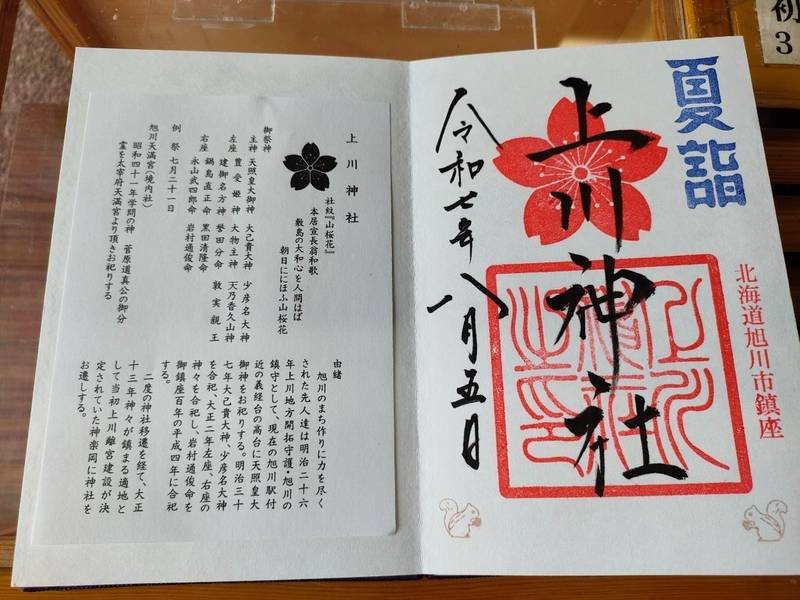 初
3
夏詣
北海道旭川市鎮座
上川神社
令和七年八月五日
上川神社
社紋『山桜花』
本居宣長翁和歌
敷島の大和心を人問はば
朝日ににほふ山桜花
御祭神
主神 天照皇大御神 大己貴大神 少彦名大神
左座 豊受姫神 大物主神 天乃香久山神
建御名方神 誉田分命 敦実親王
右座 鍋島直正命 黒田清隆命
永山武四郎命 岩村通俊命
例祭 七月二十一日
旭川天満宮(境内社)
昭和四十一年学問の神 菅原道真公の御分
霊を太宰府天満宮より頂きお祀りする
由緒
旭川のまち作りに力を尽く
された先人達は明治二十六
年上川地方開拓守護・旭川の
鎮守として、現在の旭川駅付
近の義経台の高台に天照皇大
御神をお祀りする。明治三十
七年大己貴大神、少彦名大神
を合祀、大正二年左座、右座の
神々を合祀し、岩村通俊命を
御鎮座百年の平成四年に合祀
する。
二度の神社移遷を経て、大正
十三年神々が鎮まる適地と
して当初上川離宮建設が決
定されていた神楽岡に神社を
お遷しする。